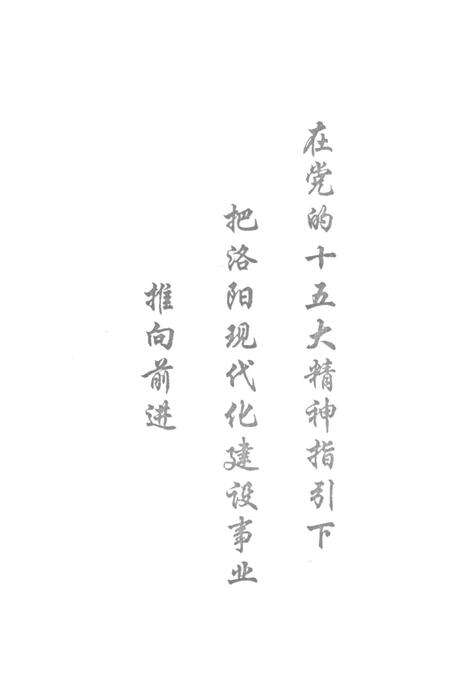 在党的十五大精神指引下
把洛阳现代化建设事业
推向前进